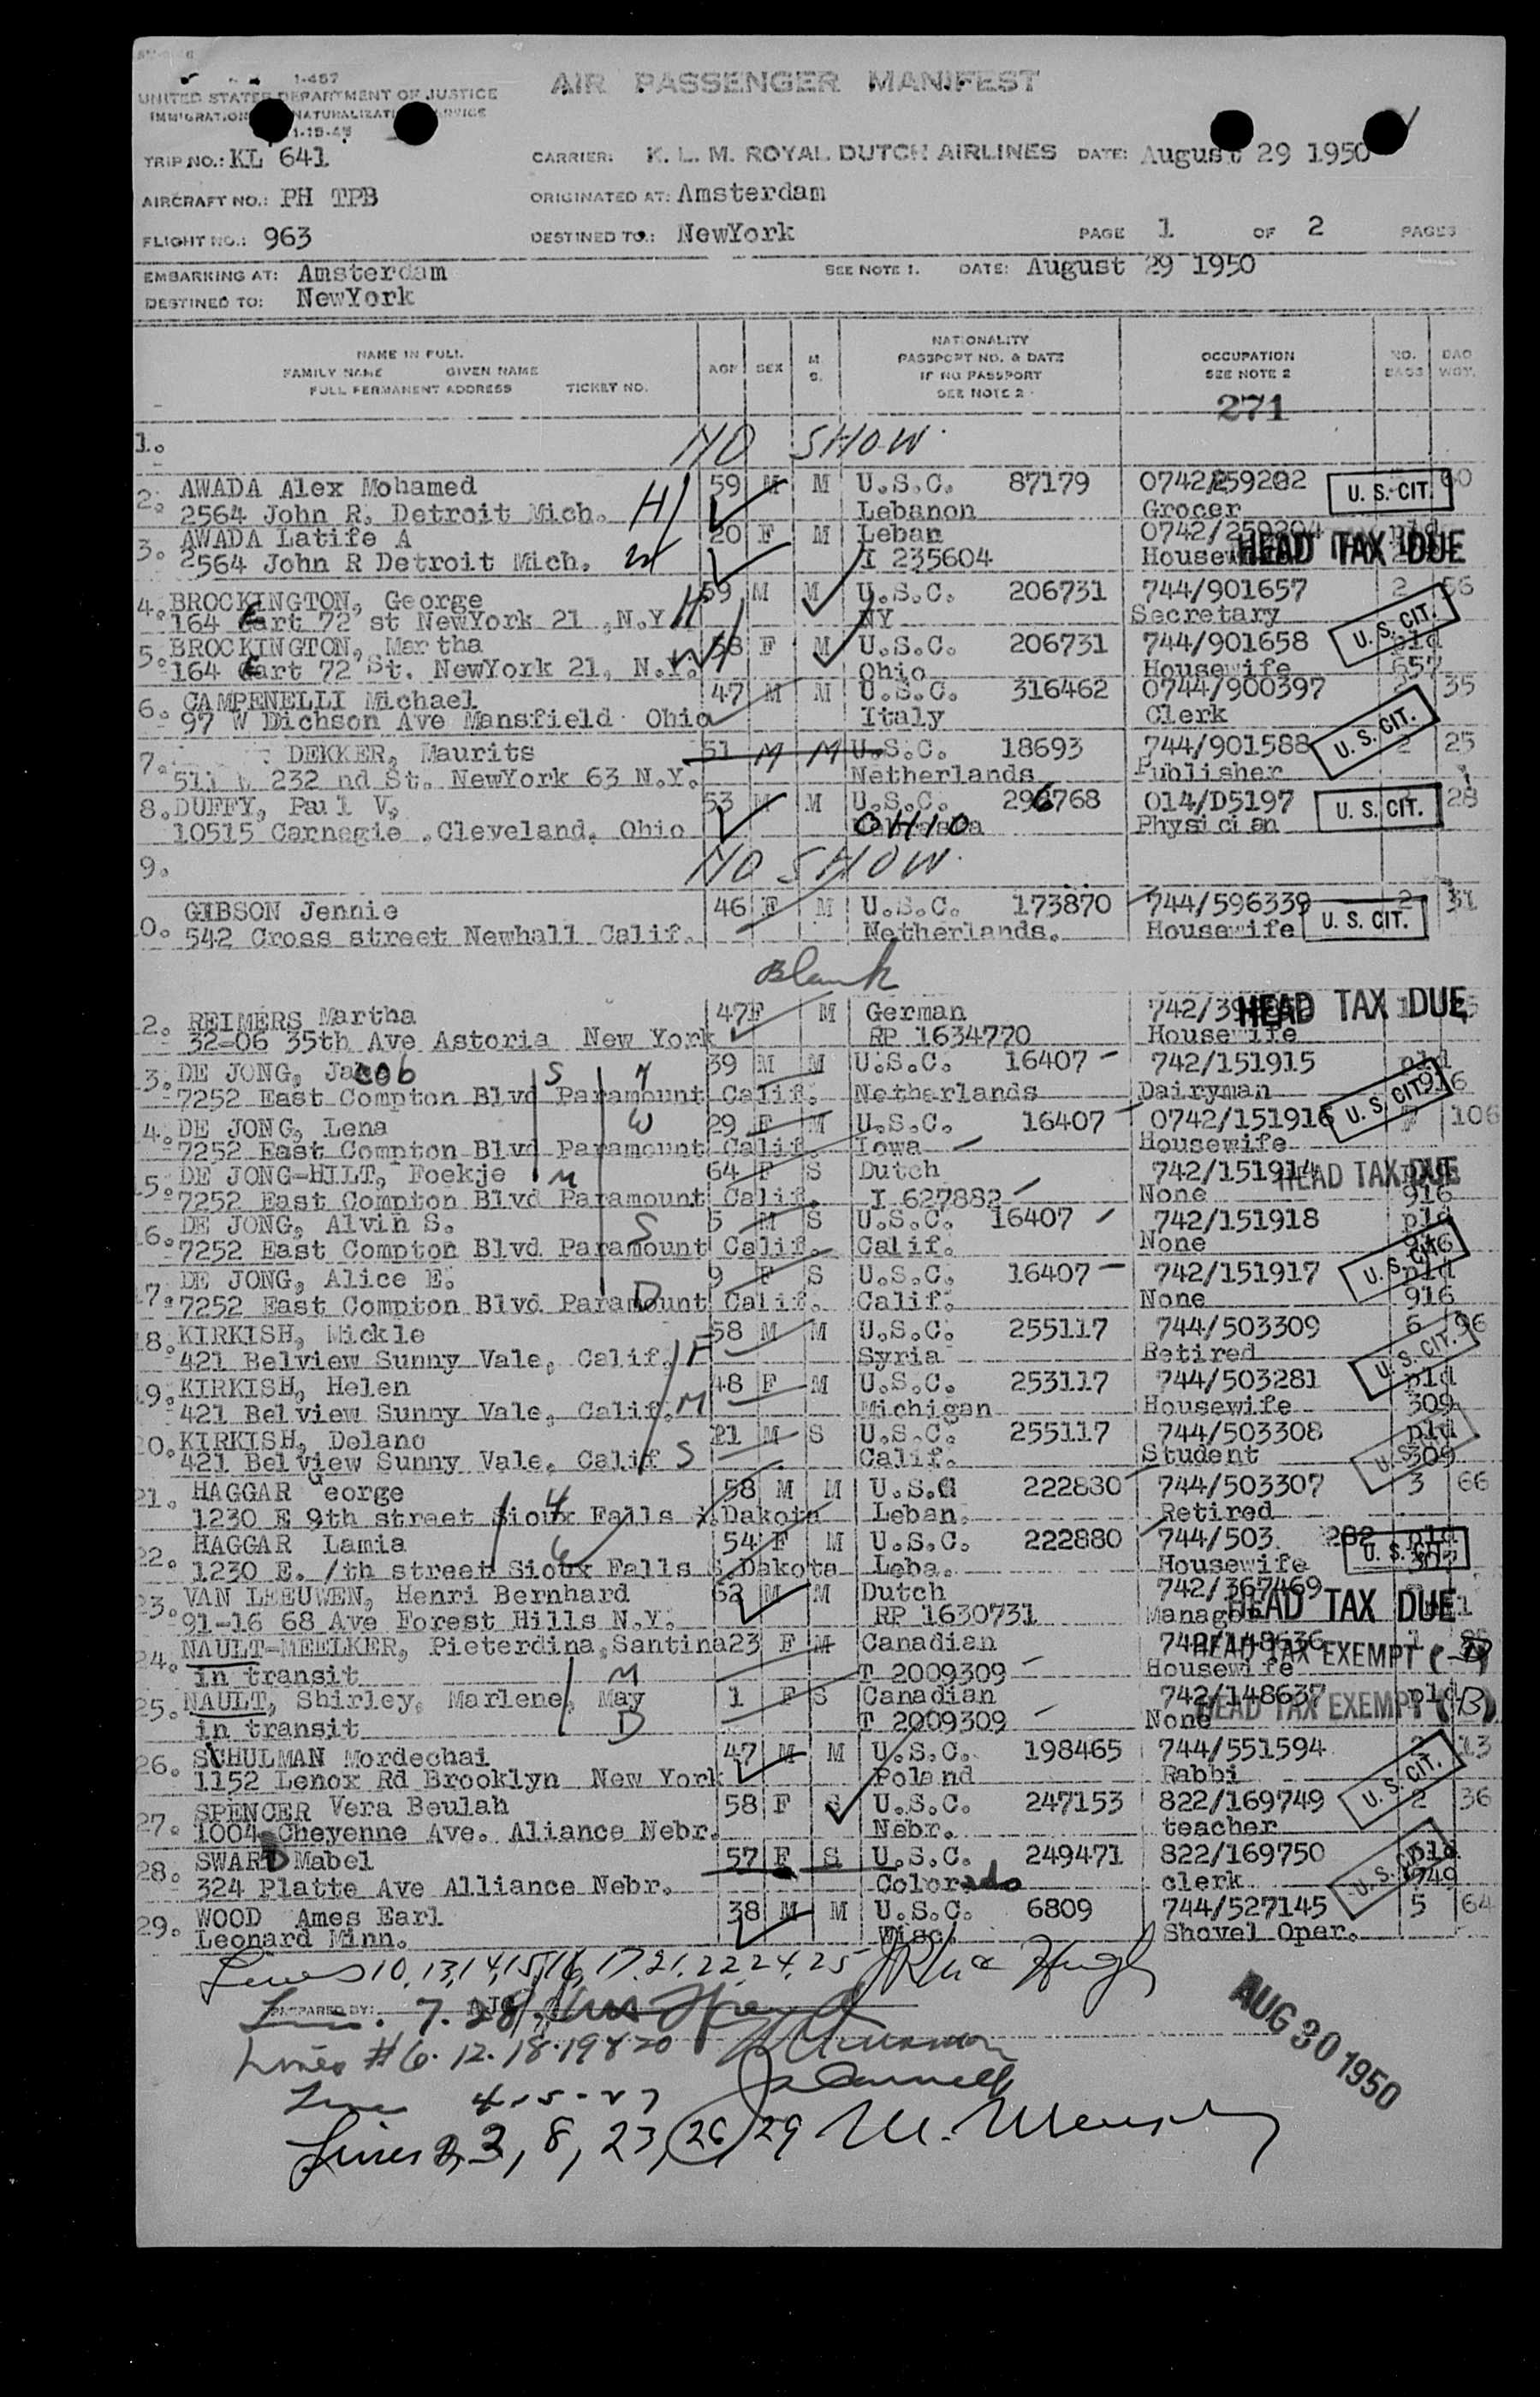 1-457
UNITED STATES DEPARTMENT OF JUSTICE
AIR PASSENGER MANIFEST
TRIP NO.: KL 641
CARRIER: K. L. M. ROYAL DUTCH AIRLINES DATE: August 29 1950
AIRCRAFT NO.: PH TPB
ORIGINATED AT: Amsterdam
FLIGHT NO.: 963
DESTINED TO.: NewYork
PAGE 1 OF 2 PAGES
EMBARKING AT: Amsterdam
SEE NOTE 1. DATE: August 29 1950
DESTINED TO: NewYork
NAME IN FULL
FAMILY NAME GIVEN NAME
FULL PERMANENT ADDRESS TICKET NO.
AGE SEX M. S.
NATIONALITY
PASSPORT NO. & DATE
IF NO PASSPORT
SEE NOTE 2
OCCUPATION
SEE NOTE 2
NO. BAGS
BAG WGT.
271
1. NO SHOW
2. AWADA Alex Mohamed 59 M M U.S.C. 87179 0742/259202 U. S. CIT. 60
2564 John R. Detroit Mich. H Lebanon Grocer
3. AWADA Latife A 20 F M Leban 0742/259204 pld
2564 John R Detroit Mich. W I 235604 Housewife HEAD TAX DUE
4. BROCKINGTON, George 59 M M U.S.C. 206731 744/901657 2 56
164 Eart 72 st NewYork 21 ,N.Y H NY Secretary U. S. CIT.
5. BROCKINGTON, Martha 58 F M U.S.C. 206731 744/901658 pld
164 Eart 72 St. NewYork 21, N.Y. W Ohio Housewife 657
6. CAMPENELLI Michael 47 M M U.S.C. 316462 0744/900397 35
97 W Dichson Ave Mansfield Ohio Italy Clerk U. S. CIT.
7. DEKKER, Maurits 51 M M U.S.C. 18693 744/901588 2 25
511 W 232 nd St. NewYork 63 N.Y. Netherlands Publisher
8. DUFFY, Paul V, 53 M M U.S.C. 296768 014/D5197 U. S. CIT. 28
10515 Carnegie ,Cleveland, Ohio OHIO Physician
9. NO SHOW
0. GIBSON Jennie 46 F M U.S.C. 173870 744/596339 2 31
542 Cross street Newhall Calif. Netherlands. Housewife U. S. CIT.
Blank
2. REIMERS Martha 47 F M German HEAD TAX DUE
32-06 35th Ave Astoria New York RP 1634770 Housewife
3. DE JONG, Jacob S H 39 M M U.S.C. 16407 742/151915 pld
7252 East Compton Blvd Paramount Calif. Netherlands Dairyman 916
4. DE JONG, Lena W 29 F M U.S.C. 16407 0742/151916 U. S. CIT. 7 106
7252 East Compton Blvd Paramount Calif Iowa Housewife
5. DE JONG-HILT, Foekje M 64 F S Dutch 742/151914 HEAD TAX DUE
7252 East Compton Blvd Paramount Calif. I 627882 None 916
6. DE JONG, Alvin S. S 5 M S U.S.C. 16407 742/151918 pld
7252 East Compton Blvd Paramount Calif. Calif. None 916
7. DE JONG, Alice E. 9 F S U.S.C. 16407 742/151917 U. S. CIT. pld
7252 East Compton Blvd Paramount Calif. D Calif. None 916
8. KIRKISH, Mickle 58 M M U.S.C. 255117 744/503309 6 96
421 Belview Sunny Vale, Calif. F Syria Retired U. S. CIT.
9. KIRKISH, Helen 48 F M U.S.C. 253117 744/503281 pld
421 Belview Sunny Vale, Calif. M Michigan Housewife 309
20. KIRKISH, Delano 21 M S U.S.C. 255117 744/503308 pld
421 Belview Sunny Vale, Calif S Calif. Student 309
21. HAGGAR George 58 M M U.S.C 222880 744/503307 3 66
1230 E 9th street Sioux Falls S.Dakota H Leban. Retired
22. HAGGAR Lamia 54 F M U.S.C. 222880 744/503 282 pld
1230 E. /th street Sioux Falls S.Dakota W Leba. Housewife U. S. CIT. 307
3. VAN LEEUWEN, Henri Bernhard 52 M M Dutch 742/367469
91-16 68 Ave Forest Hills N.Y. RP 1630731 Manager HEAD TAX DUE
24. NAULT-MEELKER, Pieterdina,Santina 23 F M Canadian 742/148636 HEAD TAX EXEMPT (B)
in transit M T 2009309 Housewife
25. NAULT, Shirley, Marlene, May 1 F S Canadian 742/148637 pld
in transit D T 2009309 None HEAD TAX EXEMPT (B)
26. SCHULMAN Mordechai 47 M M U.S.C. 198465 744/551594 2 13
1152 Lenox Rd Brooklyn New York Poland Rabbi U. S. CIT.
27. SPENCER Vera Beulah 58 F S U.S.C. 247153 822/169749 2 36
1004 Cheyenne Ave. Aliance Nebr. Nebr. teacher
28. SWARD Mabel 57 F S U.S.C. 249471 822/169750 pld
324 Platte Ave Alliance Nebr. Colorado clerk 749
29. WOOD Ames Earl 38 M M U.S.C. 6809 744/527145 5 64
Leonard Minn. Wisc. Shovel Oper.
Lines 10, 13, 14, 15, 16, 17, 21, 22, 24, 25
PREPARED BY:
7. 28
Lines # 6. 12. 18. 19 & 20
Line 4-5-27
Lines 2, 3, 8, 23, 26, 29
AUG 30 1950